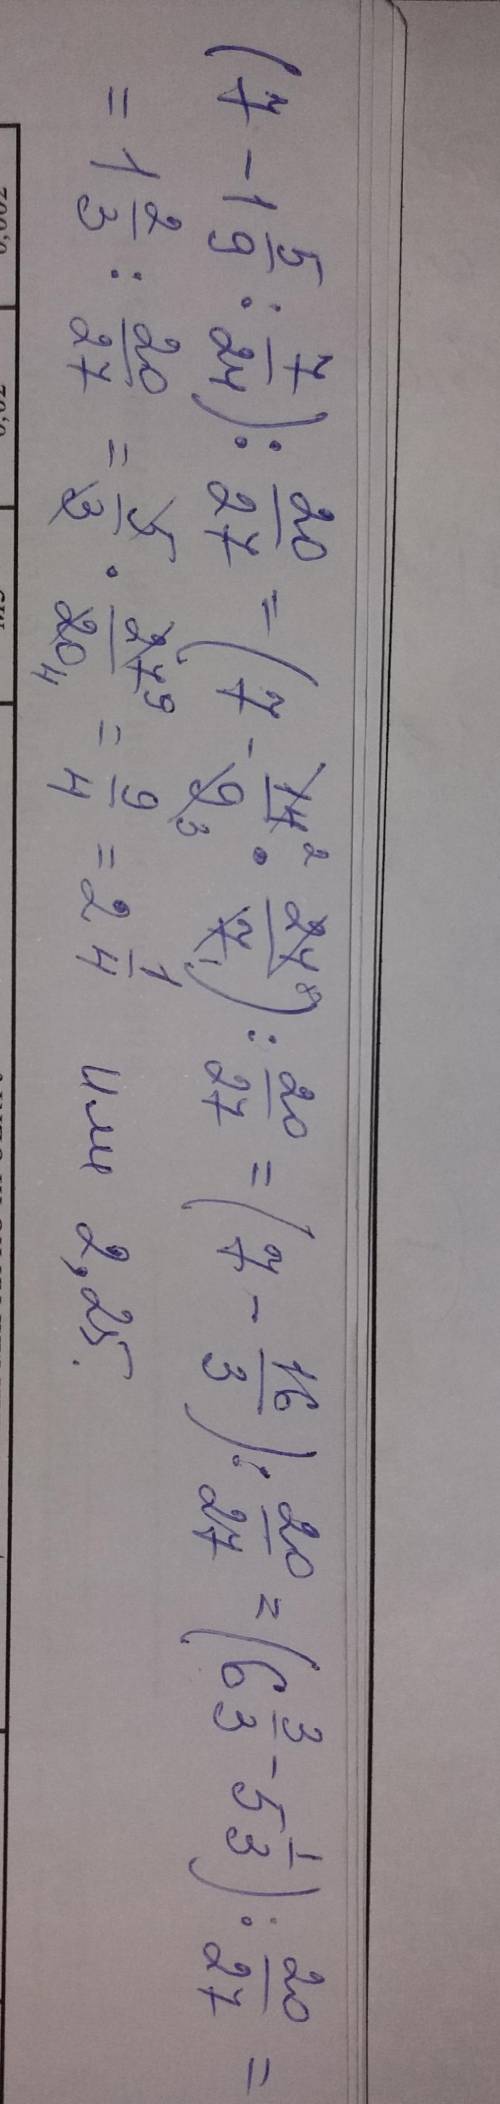 (7 - 1 5/9 : 7/24) : 20/27 = (7 - 14²/9₃ · 24⁸/7₁) : 20/27 = (7 - 16/3) : 20/27 = (6 3/3 - 5 1/3) : 20/27 =
= 1 2/3 : 20/27 = 5/3 · 27⁹/20₄ = 9/4 = 2 1/4 или 2,25.
0,02